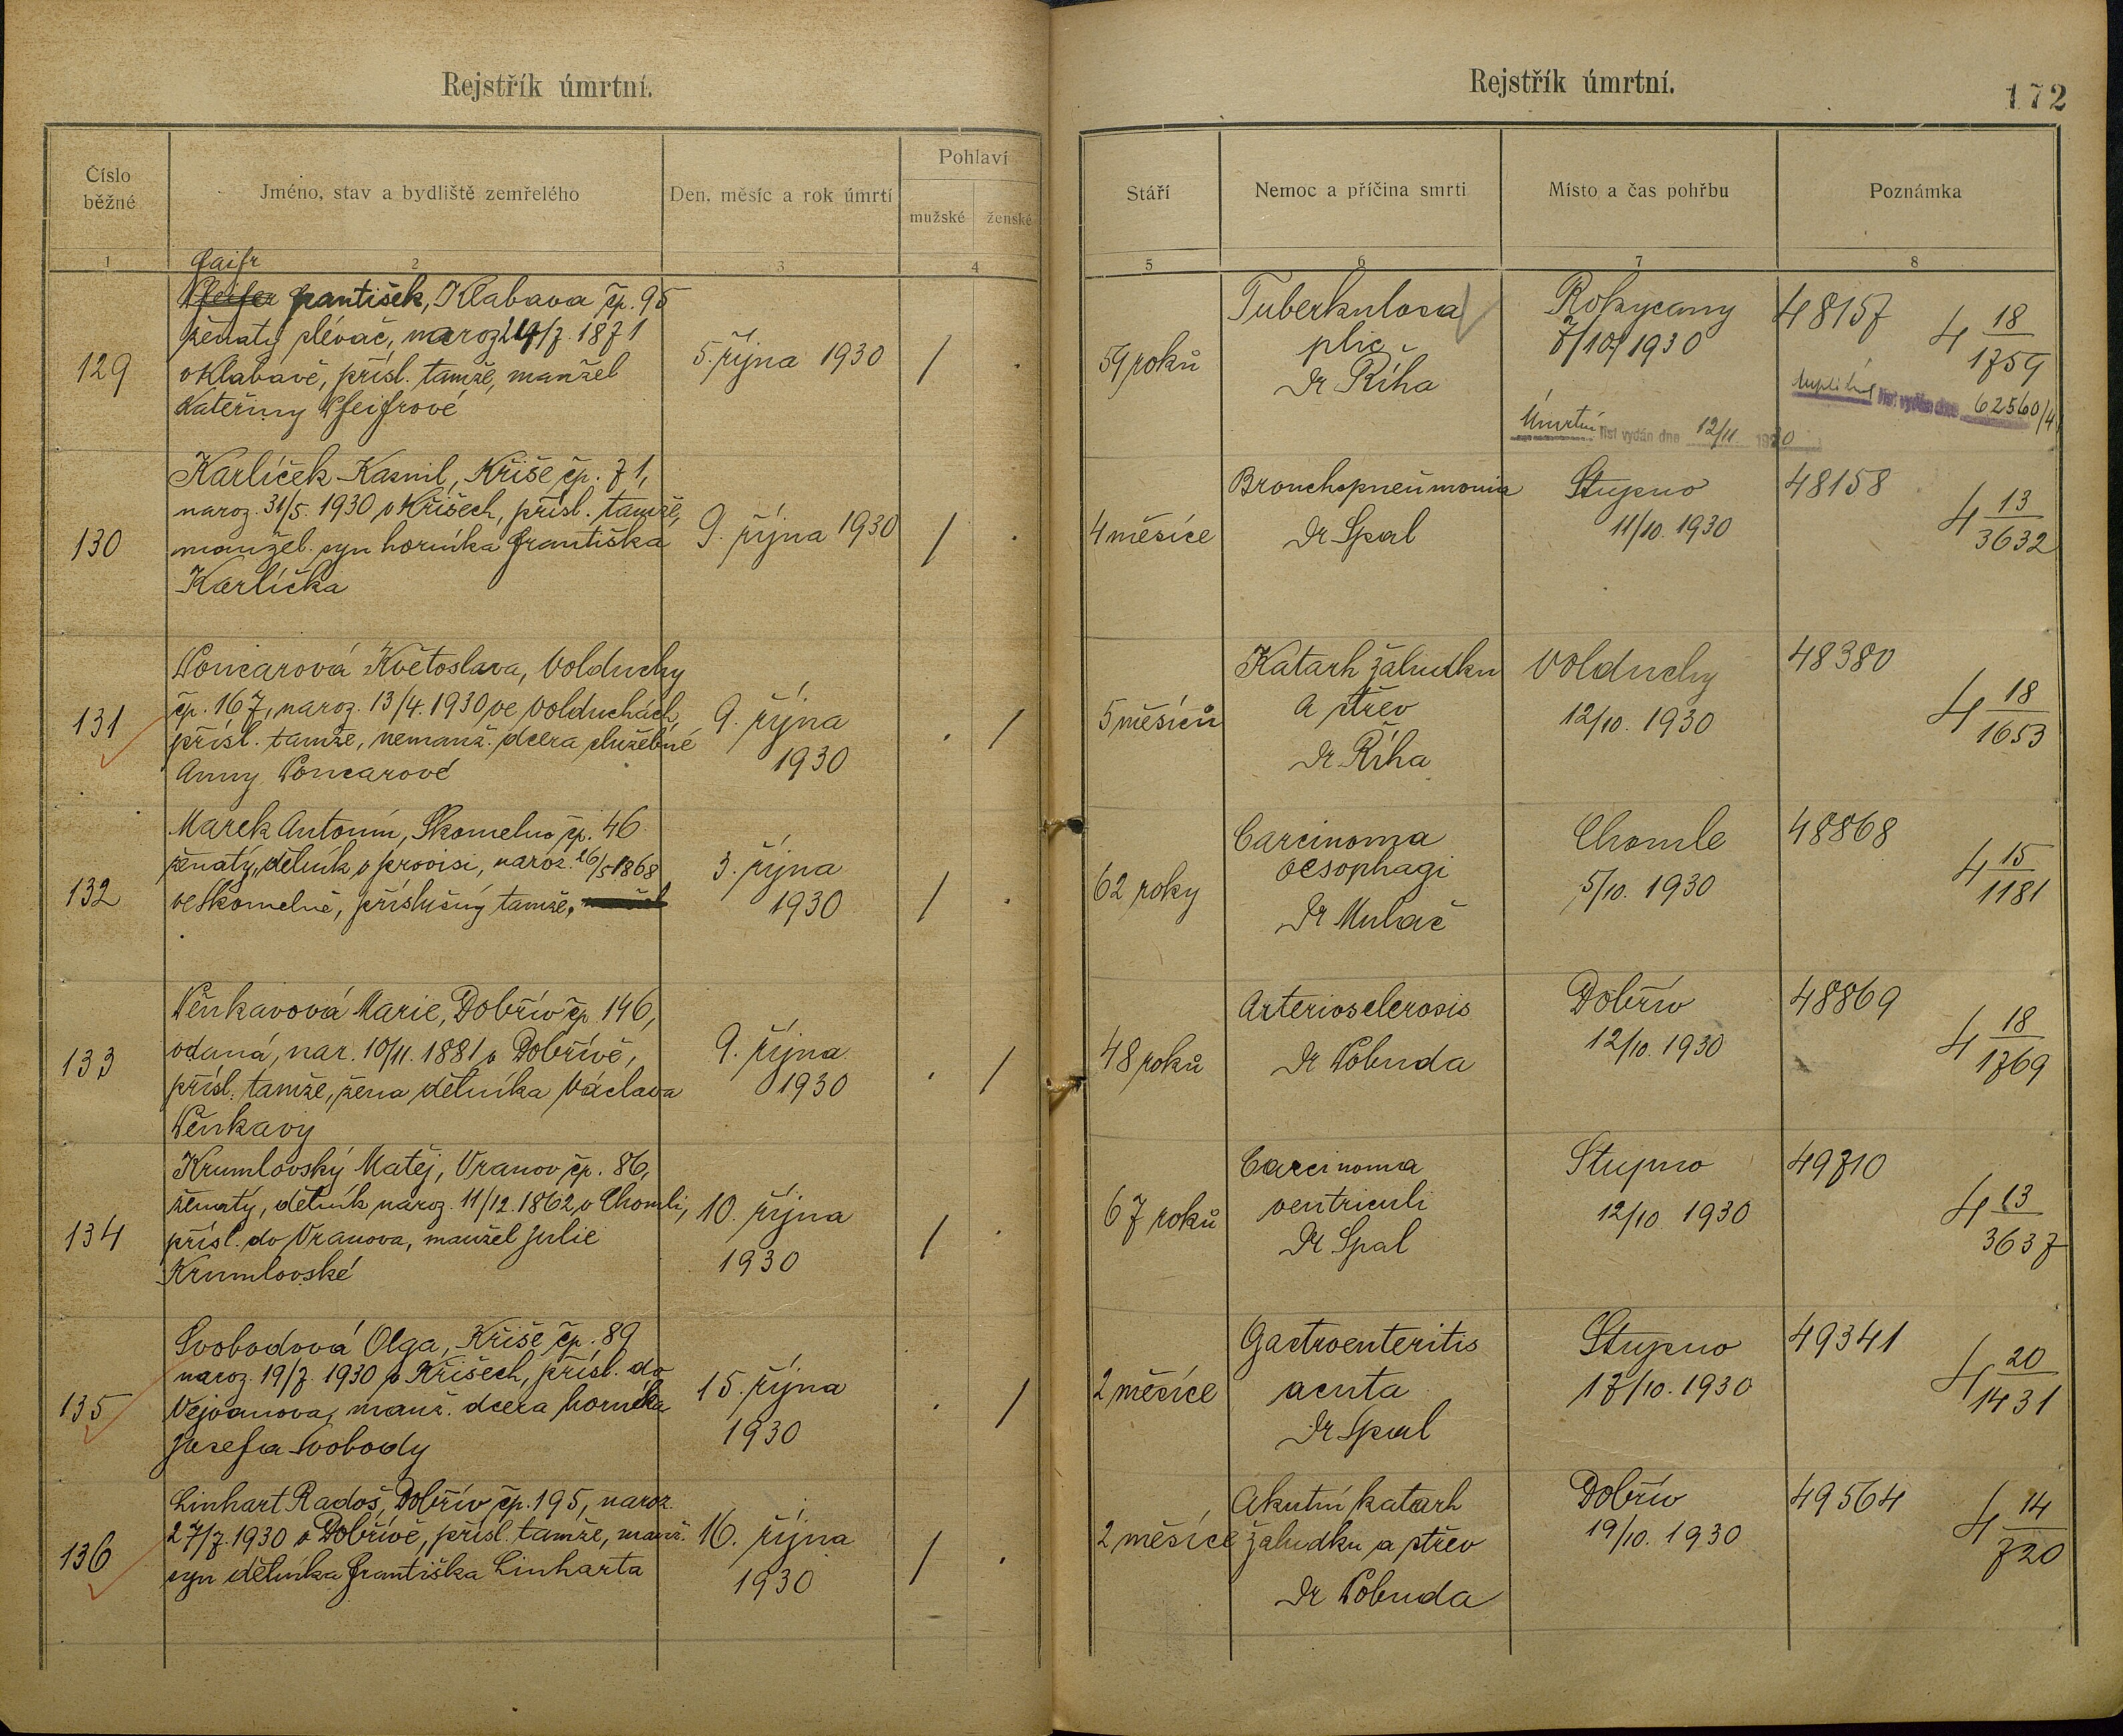 Rejstřík úmrtní.
Číslo běžné
Jméno, stav a bydliště zemřelého
Den, měsíc a rok úmrtí
Pohlaví
mužské
ženské
1
2
3
4
Faifr
Pfeifer František, Klabava čp. 95
ženatý plévač, naroz. /7. 1871
v Klabavě, přísl. tamže, manžel
Kateřiny Pfeifrové
129
5. října 1930
/ .
Karlíček Kamil, Kříše čp. 71,
naroz. 31/5. 1930 v Kříšech, přísl. tamže,
manžel. syn horníka Františka
Karlíčka
130
9. října 1930
/ .
Poncarová Květoslava, Volduchy
čp. 167, naroz. 13/4. 1930 ve Volduchách,
přísl. tamže, nemanž. dcera služebné
Anny Poncarové
131
9. října
1930
. /
Marek Antonín, Skomelno čp. 46
ženatý, dělník v provisi, naroz. 26/5 1868
ve Skomelně, příslušný tamže,
132
3. října
1930
/ .
Pěnkavová Marie, Dobřív čp. 146,
vdaná, nar. 10/11. 1881 v Dobřívě,
přísl. tamže, žena dělníka Václava
Pěnkavy
133
9. října
1930
. /
Krumlovský Matěj, Vranov čp. 86,
ženatý, dělník naroz. 11/12. 1862 v Chomli,
přísl. do Vranova, manžel Julie
Krumlovské
134
10. října
1930
/ .
Svobodová Olga, Kříše čp. 89
naroz. 19/7. 1930 v Kříšech, přísl. do
Vejvanova, manž. dcera horníka
Josefa Svobody
135
15. října
1930
. /
Linhart Radoš, Dobřív čp. 195, naroz.
27/7. 1930 v Dobřívě, přísl. tamže, manž.
syn dělníka Františka Linharta
136
16. října
1930
/ .
Rejstřík úmrtní.
172
Stáří
Nemoc a příčina smrti
Místo a čas pohřbu
Poznámka
5
6
7
8
59 roků
Tuberkulosa
plic
Dr Říha
Rokycany
7/10 1930
48157
4 18/1759
list vydán dne 62560/4
Úmrtní list vydán dne 12/11 1930
4 měsíce
Bronchopneumonia
Dr Spal
Stupno
11/10. 1930
48158
4 13/3632
5 měsíců
Katarh žaludku
a střev
Dr Říha
Volduchy
12/10. 1930
48380
4 18/1653
62 roky
Carcinoma
oesophagi
Dr Mulač
Chomle
5/10. 1930
48868
4 15/1181
48 roků
Arteriosclerosis
Dr Pobuda
Dobřív
12/10. 1930
48869
4 18/1769
67 roků
Carcinoma
ventriculi
Dr Spal
Stupno
12/10 1930
49710
4 13/3637
2 měsíce
Gastroenteritis
acuta
Dr Spal
Stupno
17/10. 1930
49341
4 20/1431
2 měsíce
Akutní katarh
žaludku a střev
Dr Pobuda
Dobřív
19/10. 1930
49564
4 14/720